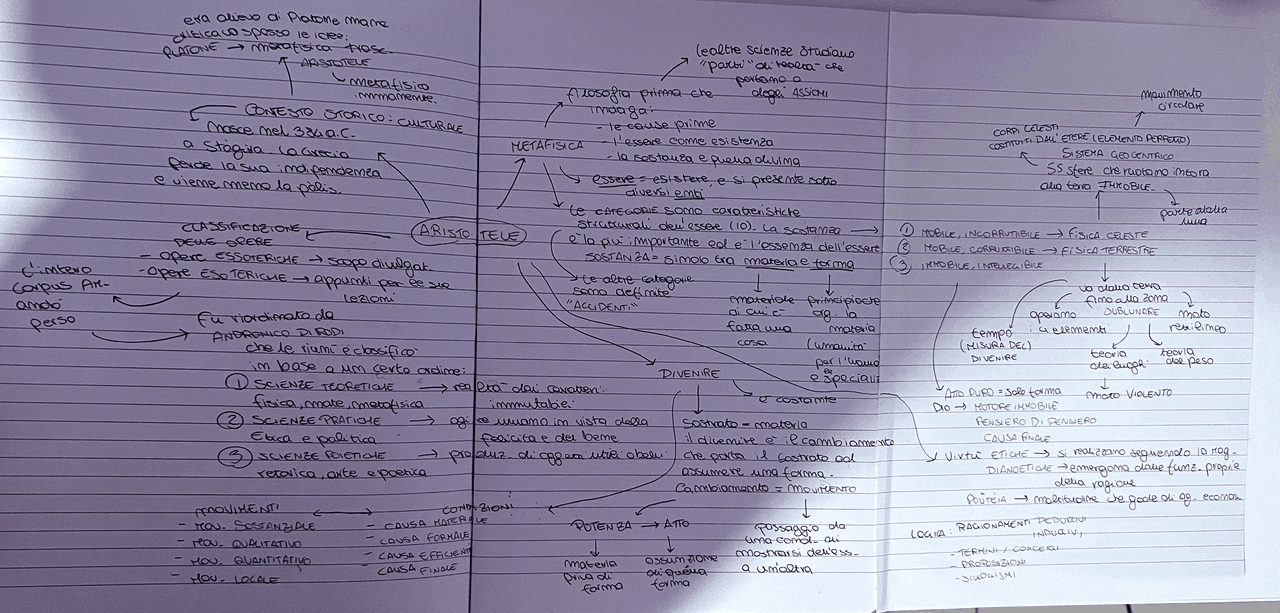 era allievo di Platone ma ne
criticava spesso le idee:
PLATONE → metafisica trasc.
ARISTOTELE
metafisico
immanente.
CONTESTO STORICO: CULTURALE
Nasce nel 384 a.C.
a Stagira. La Grecia
perde la sua indipendenza
e viene meno la polis.
ARISTOTELE
CLASSIFICAZIONE
DELLE OPERE
- OPERE ESSOTERICHE → scopo divulgat.
- Opere ESOTERICHE → appunti per le sue
lezioni
L'intero
corpus
andò
perso
Fu riordinato da
ANDRONICO DI RODI
che le riunì e classificò
in base a un certo ordine:
1 SCIENZE TEORETICHE → realtà dai caratteri
fisica, mate, metafisica immutabili
2 SCIENZE PRATICHE → agire umano in vista della
Etica e politica felicità e del bene
3 SCIENZE POIETICHE → produz. di oggetti utili
retorica, arte e poetica
MOVIMENTI
- MOV. SOSTANZIALE
- MOV. QUALITATIVO
- MOV. QUANTITATIVO
- MOV. LOCALE
CONDIZIONI
- CAUSA MATERIALE
- CAUSA FORMALE
- CAUSA EFFICIENTE
- CAUSA FINALE
le altre scienze studiano
"parti" di realtà che
portano a
degli ASSIOMI
filosofia prima che
indaga:
- le cause prime
METAFISICA
- l'essere come esistenza
- la sostanza e quella divina
essere = esistere, e si presenta sotto
diversi enti
Le CATEGORIE sono caratteristiche
strutturali dell'essere (10). La sostanza
è la più importante ed è l'essenza dell'essere
SOSTANZA = sinolo tra materia e forma
Le altre categorie
sono definite
"ACCIDENTI"
materiale
di cui è
fatta una
cosa
principio che
org. la
materia
(umanità
per l'uomo
DIVENIRE
è costante
Sostrato = materia
il divenire è il cambiamento
che porta il sostrato ad
assumere una forma.
Cambiamento = MOVIMENTO
POTENZA → ATTO
materia
priva di
forma
assunzione
di quella
forma
passaggio da
una cond. di
mostrarsi dell'ess.
a un'altra
movimento
circolare
CORPI CELESTI
COSTITUITI DALL'ETERE (ELEMENTO PERFETTO)
SISTEMA GEOCENTRICO
55 sfere che ruotano intorno
alla terra IMMOBILE
parte dalla
luna
1 MOBILE, INCORRUTTIBILE → FISICA CELESTE
2 MOBILE, CORRUTTIBILE → FISICA TERRESTRE
3 IMMOBILE, INTELLEGIBILE
va dalla terra
fino alla zona
SUBLUNARE
tempo
(MISURA DEL)
DIVENIRE
operano
i 4 elementi
moto
rettilineo
teoria
dei luoghi
teoria
del peso
moto VIOLENTO
ATTO PURO = solo forma
DIO → MOTORE IMMOBILE
PENSIERO DI PENSIERO
CAUSA FINALE
Virtù ETICHE → si realizzano seguendo la rag.
DIANOETICHE → emergono dalle funz. proprie
della ragione
POLITEIA → moltitudine che gode di ag. econom.
LOGICA: RAGIONAMENTI DEDUTTIVI
INDUTTIVI
- TERMINI / CONCETTI
- PROPOSIZIONI
- SILLOGISMI